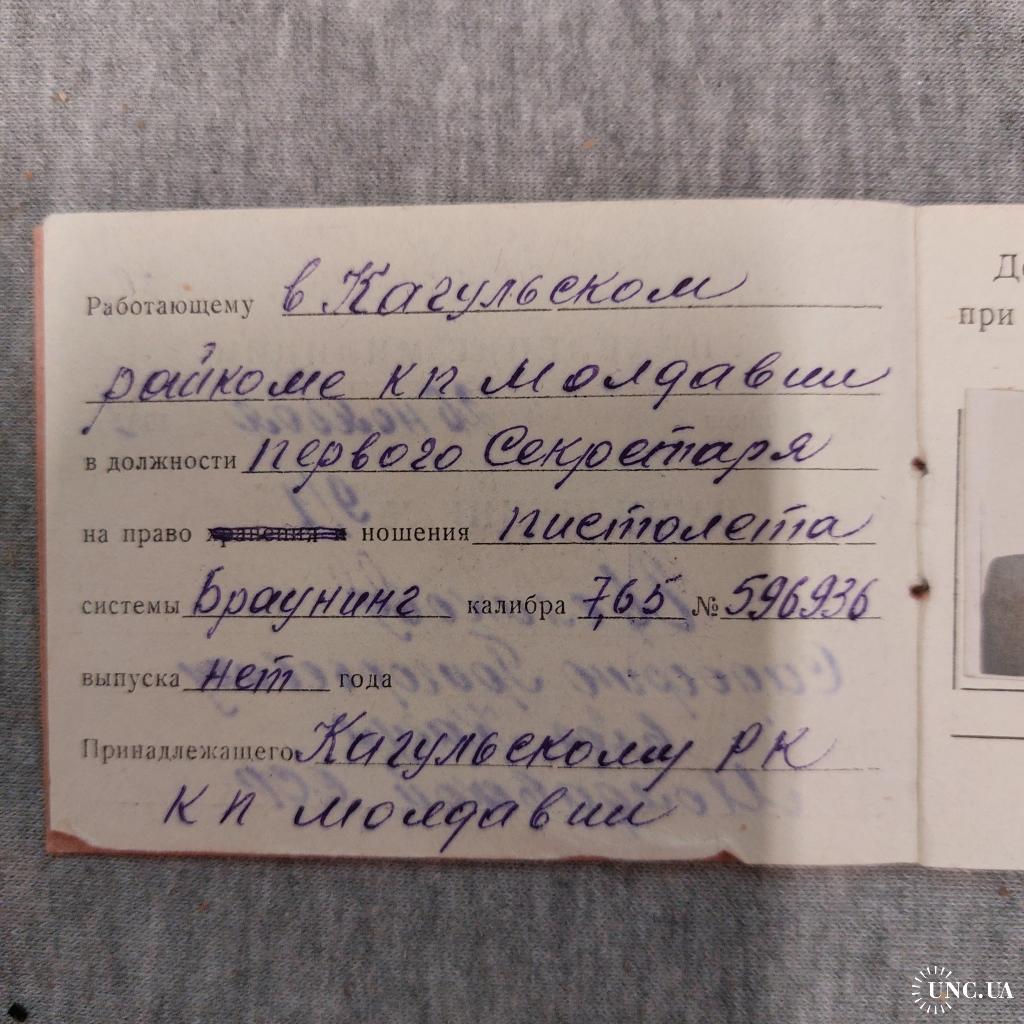 Работающему в Кагульском
райкоме КП Молдавии
в должности первого Секретаря
на право хранения и ношения пистолета
системы Браунинг калибра 7,65 № 596936
выпуска нет года
Принадлежащего Кагульскому РК
КП Молдавии
при
UNC.UA